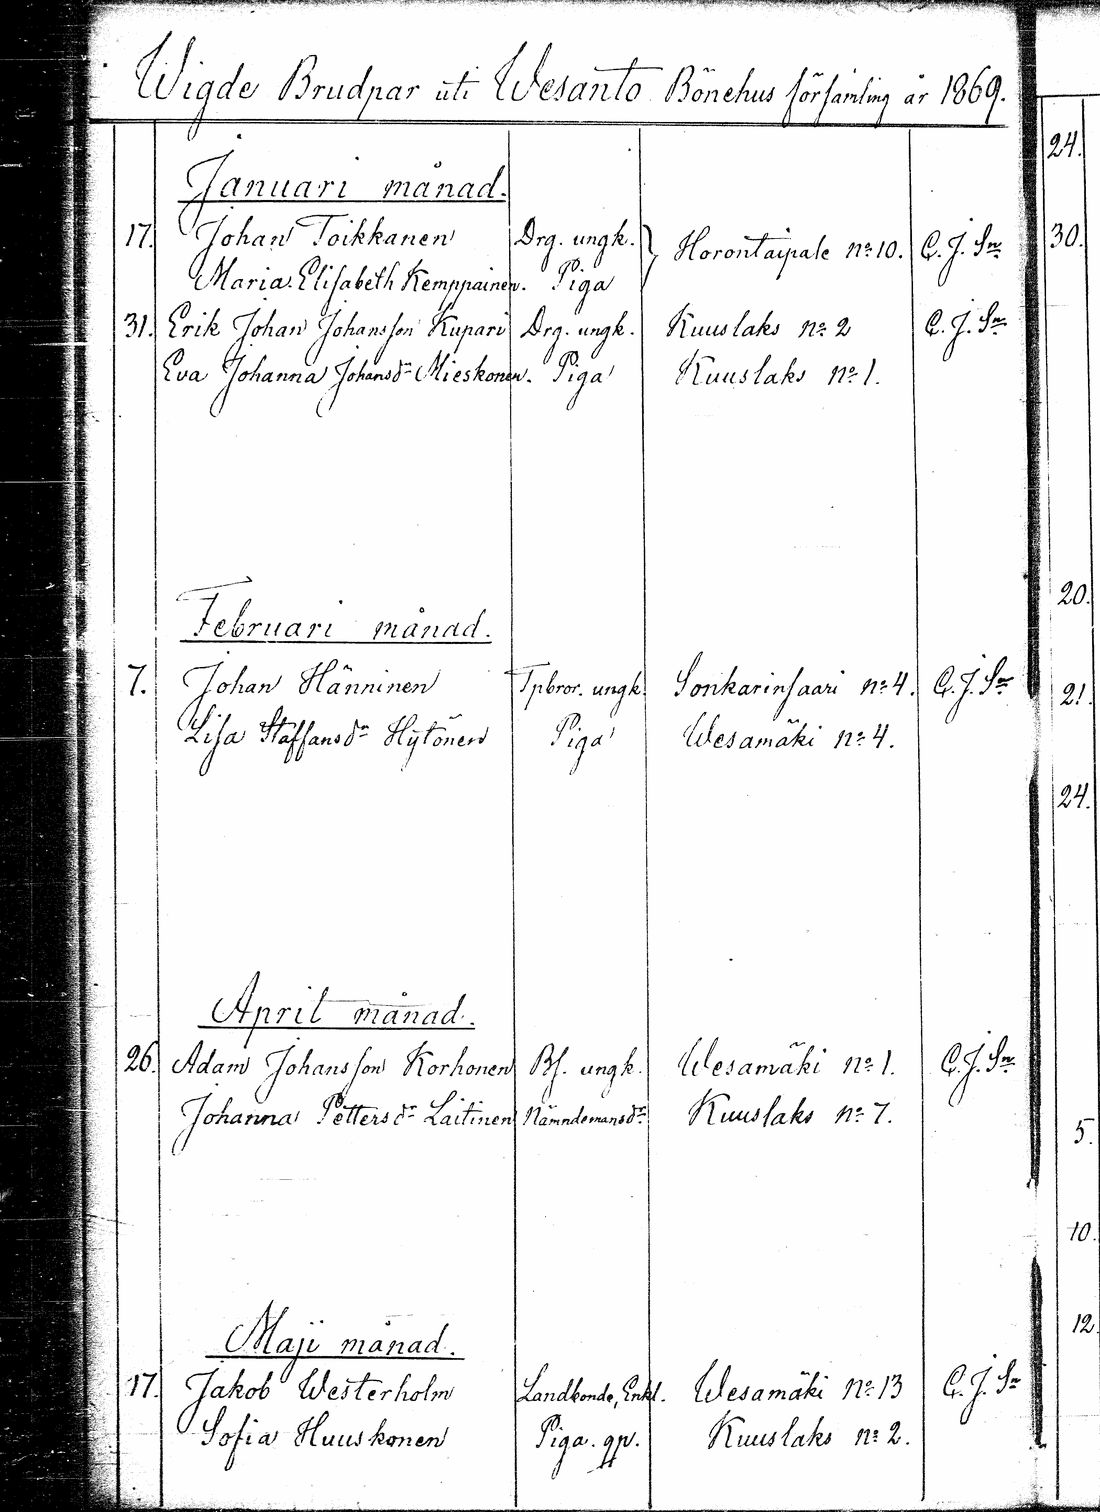 Wigde Brudpar uti Wesanto Bönehus församling år 1869.
Januari månad.
17. Johan Toikkanen Drg. ungk. } Horontaipale No 10. C. J. Sn
Maria Elisabeth Kemppainen. Piga
31. Erik Johan Johansson Kupari Drg. ungk. Kuuslaks No 2 C. J. Sn
Eva Johanna Johansdr Mieskonen. Piga Kuuslaks No 1.
Februari månad.
7. Johan Hänninen Tpbror. ungk. Sonkarinsaari No 4. C. J. Sn
Lisa Staffansdr Hytönen Piga Wesamäki No 4.
April månad.
26. Adam Johansson Korhonen Bs. ungk. Wesamäki No 1. C. J. Sn
Johanna Pettersdr Laitinen Nämndemansdr Kuuslaks No 7.
Maji månad.
17. Jakob Westerholm Landbonde, Enkl. Wesamäki No 13 C. J. Sn
Sofia Huuskonen Piga. qp. Kuuslaks No 2.
24.
30.
20.
21.
24.
5.
10.
12.